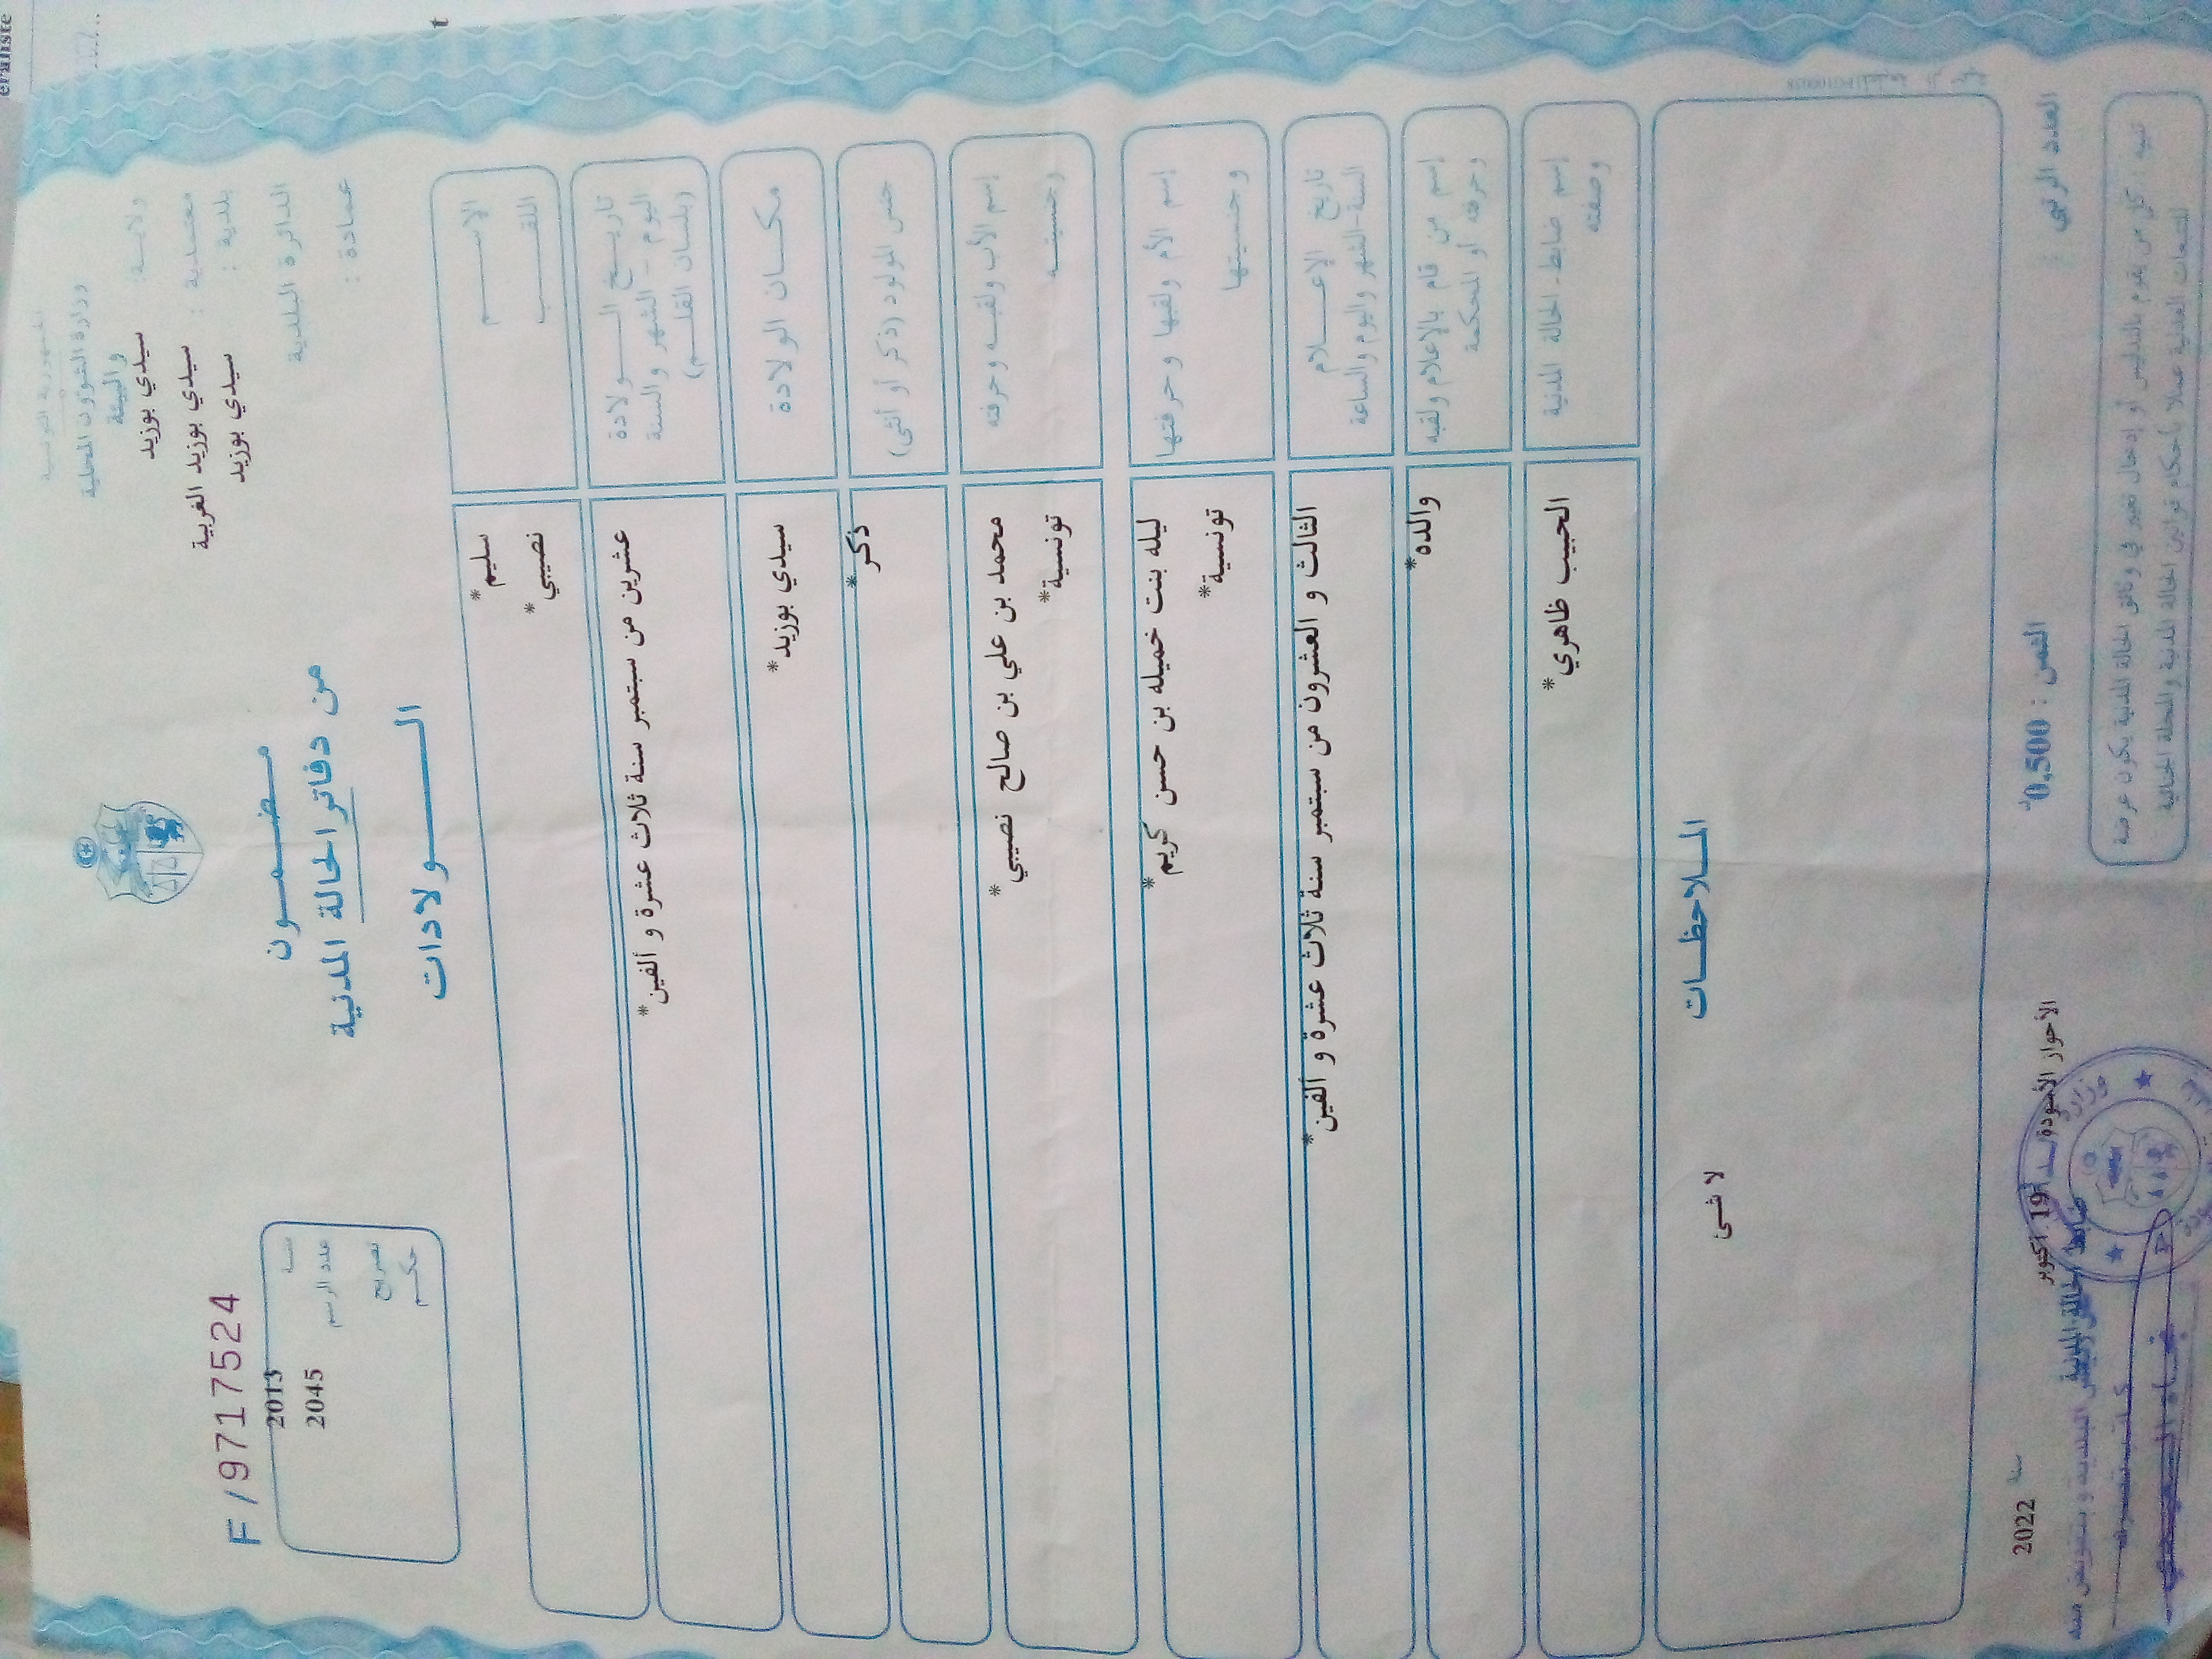 الجمهورية التونسية
وزارة الشؤون المحلية
والبيئة
ولاية : سيدي بوزيد
معتمدية : سيدي بوزيد الغربية
بلدية : سيدي بوزيد
الدائرة البلدية
عمادة :
F/9717524
سنة 2013
عدد الرسم 2045
تصريح
حكم
مضمون
من دفاتر الحالة المدنية
الولادات
الإسم سليم*
اللقب نصيبي*
تاريخ الولادة
اليوم - الشهر والسنة
(بلسان القلم)
عشرين من سبتمبر سنة ثلاث عشرة و ألفين*
مكان الولادة سيدي بوزيد*
جنس المولود (ذكر أو أنثى) ذكر*
إسم الأب ولقبه وحرفته محمد بن علي بن صالح نصيبي*
وجنسيته تونسية*
إسم الأم ولقبها وحرفتها ليله بنت خميله بن حسن كريم*
وجنسيتها تونسية*
تاريخ الإعلام
السنة-الشهر واليوم والساعة
الثالث و العشرون من سبتمبر سنة ثلاث عشرة و ألفين*
إسم من قام بالإعلام ولقبه والده*
وحرفته أو المحكمة
إسم ضابط الحالة المدنية الحبيب ظاهري*
وصفته
الملاحظات
لا شئ
العدد الرتبي :
الثمن : 0,500د
الأحواز الأسودة
19 أكتوبر سنة 2022
ضابط الحالة المدنية
تنبيه : كل من يقوم بالتدليس أو إدخال تغيير في وثائق الحالة المدنية يكون عرضة
للتتبعات العدلية عملا بأحكام قوانين الحالة المدنية والمجلة الجنائية